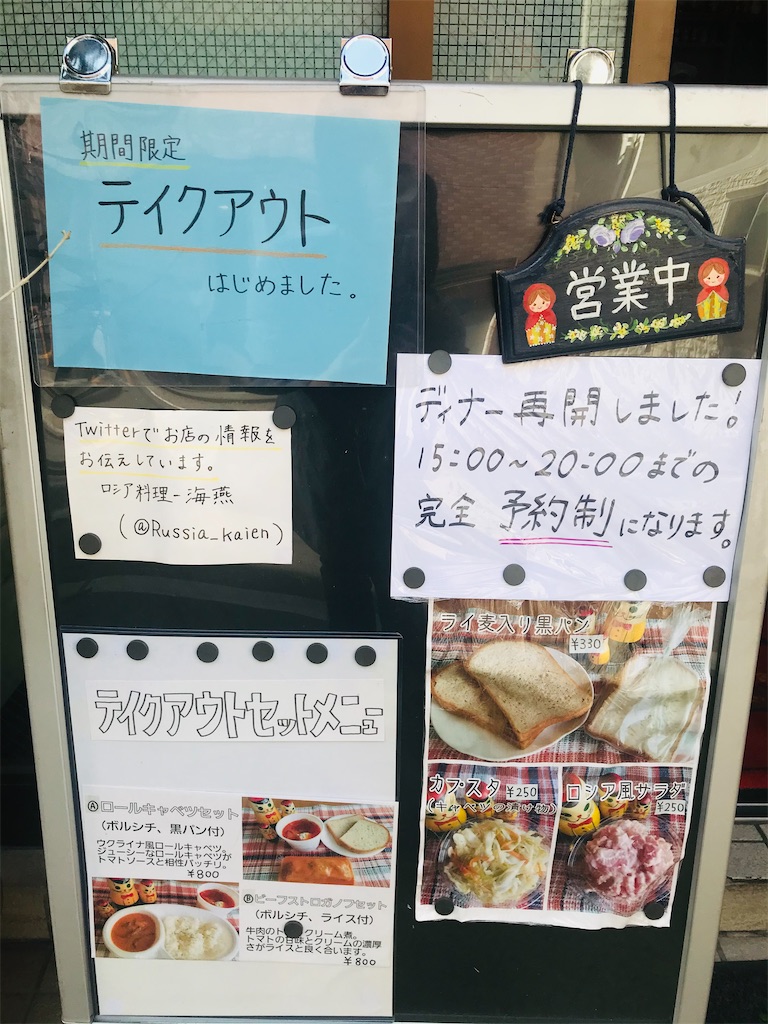 期間限定
テイクアウト
はじめました。
営業中
Twitterでお店の情報を
お伝えしています。
ロシア料理-海燕
(@Russia_kaien)
ディナー再開しました!
15:00~20:00までの
完全 予約制になります。
テイクアウトセットメニュー
Ⓐロールキャベツセット
(ボルシチ、黒パン付)
ウクライナ風ロールキャベツ。
ジューシーなロールキャベツが
トマトソースと相性バッチリ。
¥800
Ⓑビーフストロガノフセット
(ボルシチ、ライス付)
牛肉のトマトクリーム煮。
トマトの甘味とクリームの濃厚
さがライスと良く合います。
¥800
ライ麦入り黒パン
¥330
カプスタ ¥250
(キャベツの漬け物)
ロシア風サラダ
¥250